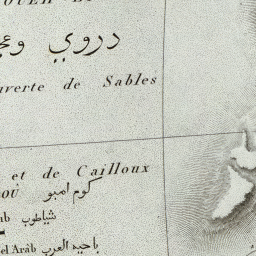 دروي وعج
verte de Sables
et de Cailloux
OÙ كوم امبو
ub شياطوب
el Aràb باجيه العرب